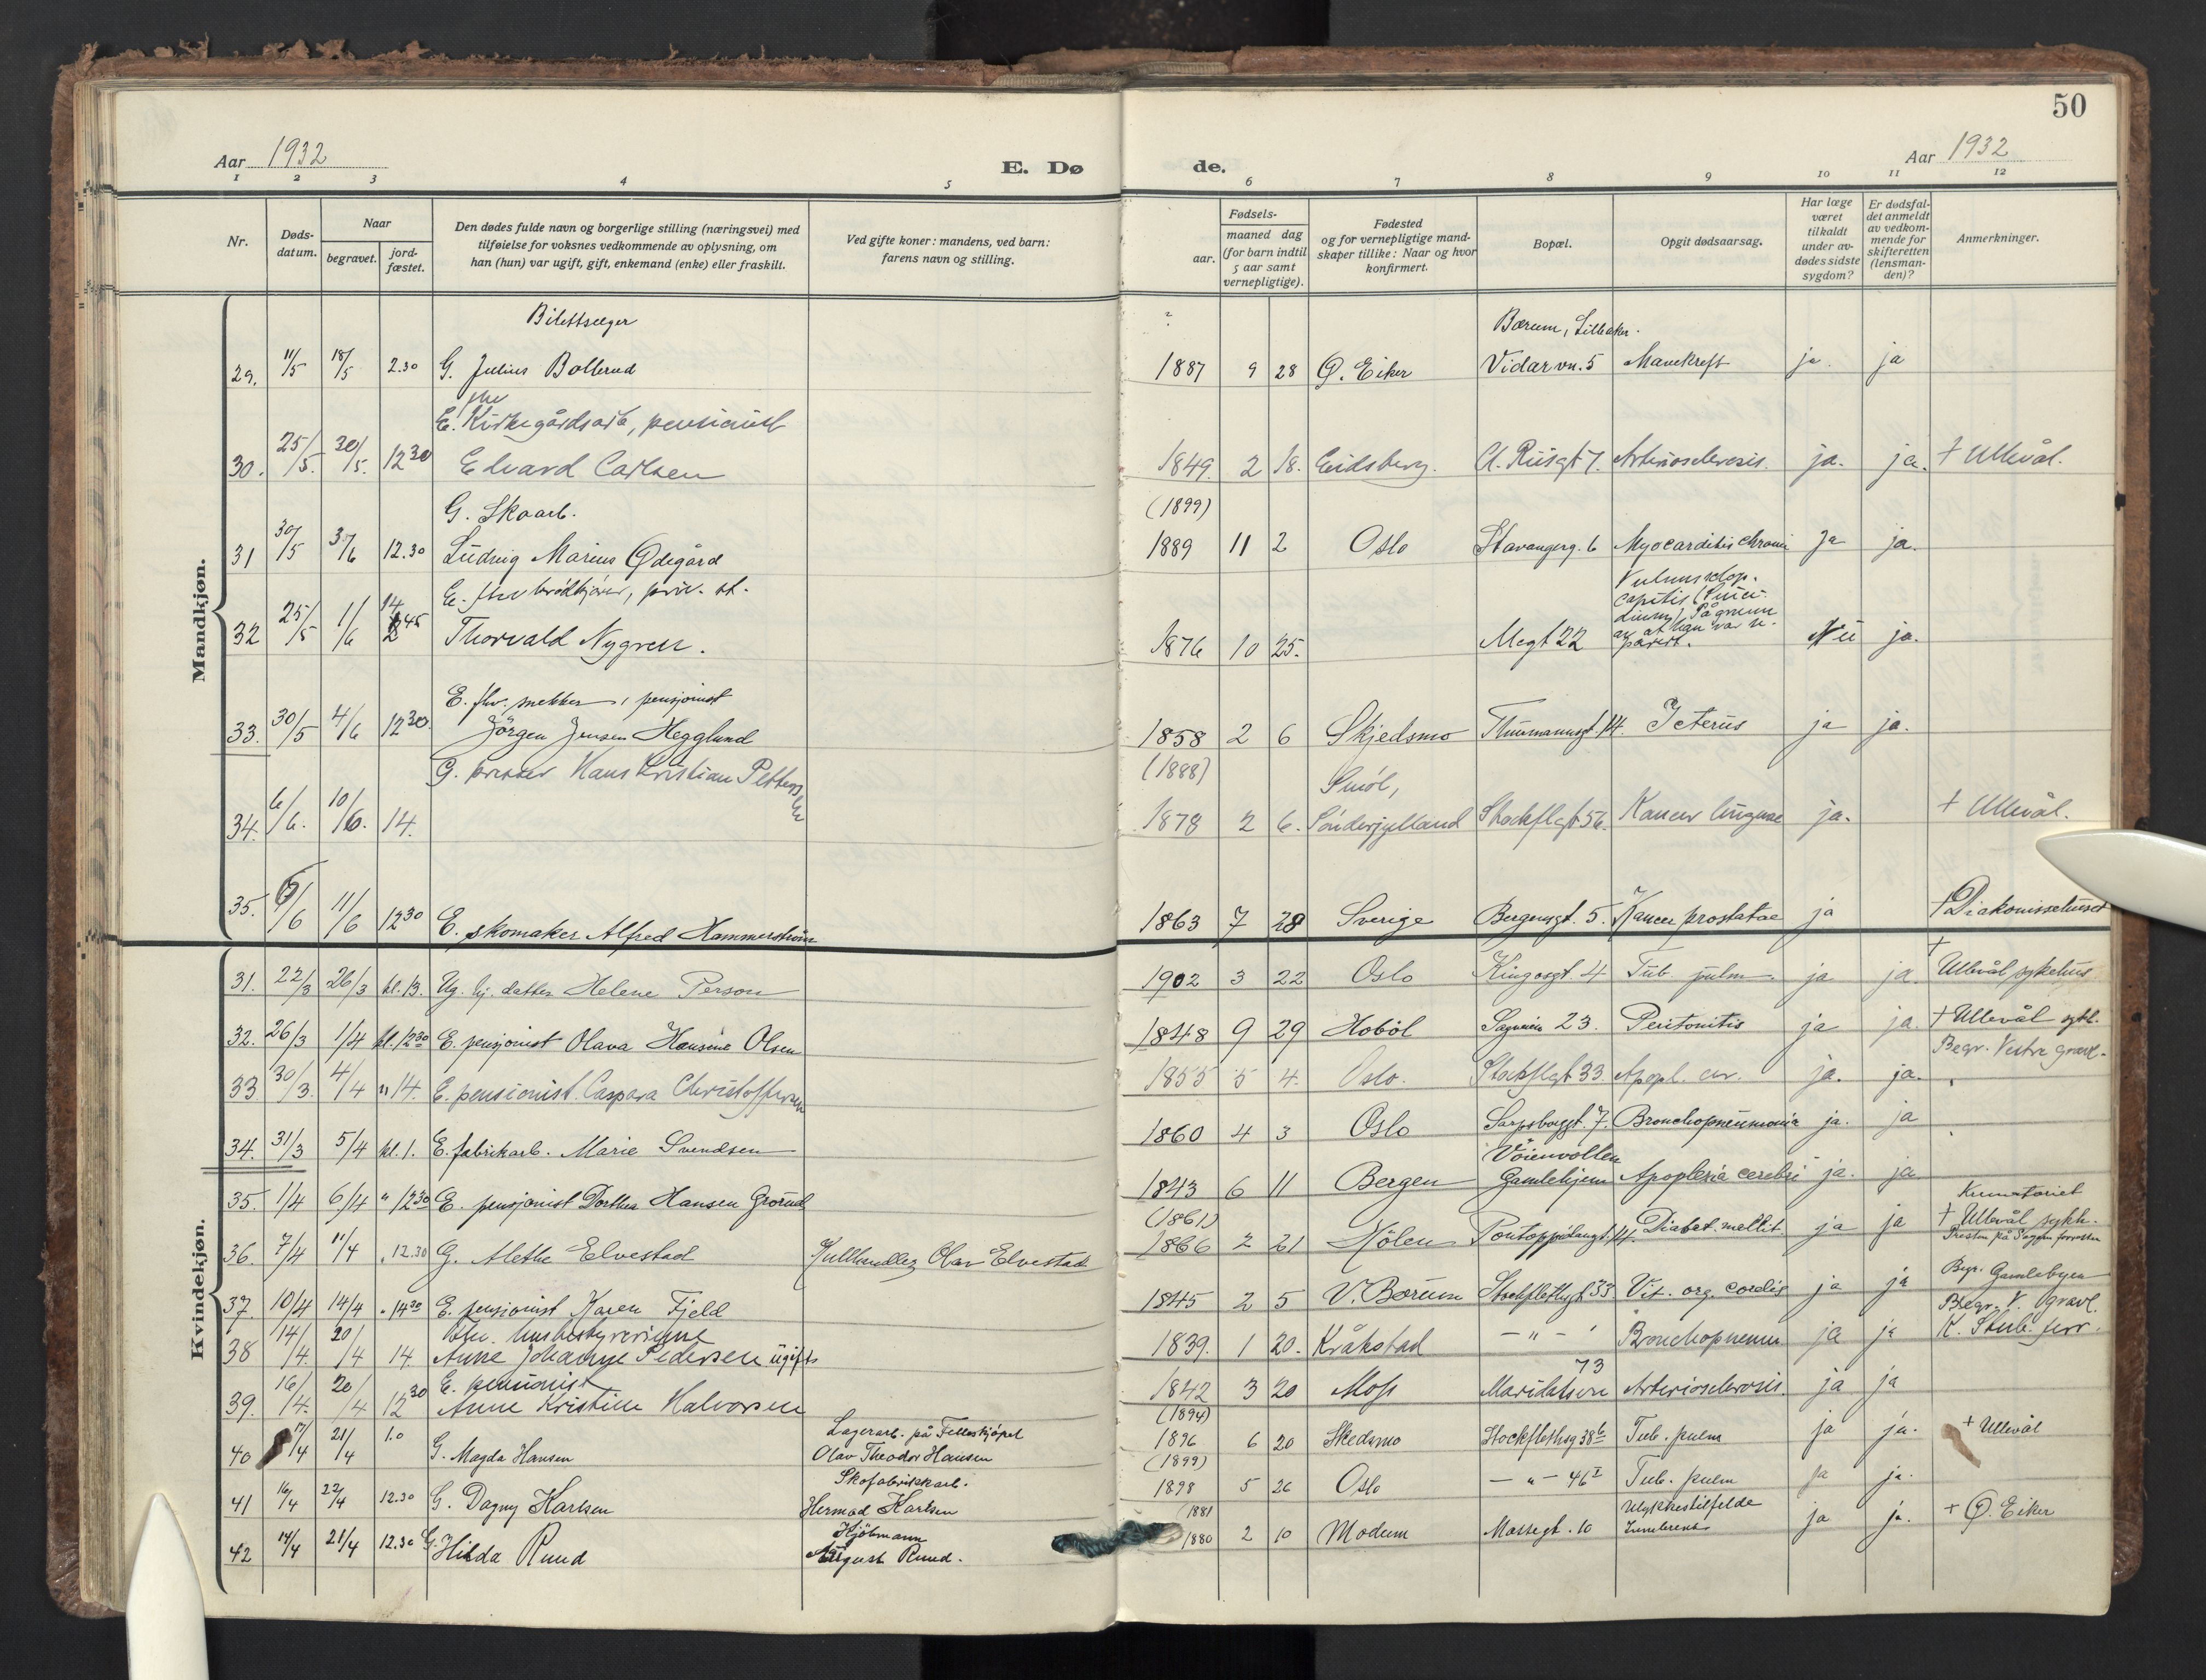 50
Aar 1932
E. Dø de.
Aar 1932
1 2 3 4 5 6 7 8 9 10 11 12
Nr.
Døds-datum.
Naar
begravet.
jord-fæstet.
Den dødes fulde navn og borgerlige stilling (næringsvei) med
tilføielse for voksnes vedkommende av oplysning, om
han (hun) var ugift, gift, enkemand (enke) eller fraskilt.
Ved gifte koner: mandens, ved barn:
farens navn og stilling.
Fødsels-
aar.
maaned dag
(for barn indtil
5 aar samt
vernepligtige).
Fødested
og for vernepligtige mand-
skaper tillike: Naar og hvor
konfirmert.
Bopæl.
Opgit dødsaarsag.
Har læge
været
tilkaldt
under av-
dødes sidste
sygdom?
Er dødsfal-
det anmeldt
av vedkom-
mende for
skifteretten
(lensman-
den)?
Anmerkninger.
Mandkjøn.
Bilettsælger
Bærum, Lilleaker.
29. 11/5 18/5 2.30 G. Julius Bollerud 1887 9 28 Ø. Eiker Vidarvn. 5 Mavekreft ja. ja
fhv
E. Kirkegårdsarb, pensionist
30. 25/5. 30/5. 12 30 Edvard Carlsen 1849. 2 18. Eidsberg. A. Riisgt 7. Arteriosclerosis. ja. ja. + Ullevål.
G. Skoarb.
(1899)
31 30/5 3/6 12.30 Ludvig Marius Ødegård 1889 11 2 Oslo Stavangerg. 6 Myocarditis chroni Ja ja.
E. fhv brødkjører, priv. st.
32 25/5 1/6 14 45 Thorvald Nygren. 1876 10 25. Megt 22 Vulnus sclop. capitis På grunn av at han var Nei ja.
E. fhv. snekker, pensjonist
33. 30/5 4/6 12 30. Jörgen Jensen Hegglund 1858 2 6 Skjedsmo Thurmannsgt. 14. Icterus ja ja.
G. Hans Kristian Pettersen
(1888)
34. 6/6. 10/6. 14. 1878 2 6. Sönderjylland Stockflgt 56. Kancer linguae ja. + Ullevål.
35. 6/6 11/6 12 30 E. skomaker Alfred Hammerström 1863 7 28 Sverige Bergensgt. 5. Kancer prostatae ja + Diakonissehuset
Kvindekjøn.
31. 22/3 26/3 kl. 13. Ug. hj. datter Helene Person 1902 3 22 Oslo Kingosgt 4 Tub. pulm. ja ja. + Ullevål sykehus
32. 26/3 1/4 kl. 12 30 E. pensjonist Olava Hansine Olsen 1848 9 29 Hobøl Sagveien 23. Peritonitis ja ja. + Ullevål sykh.
Begr. Vestre gravl.
33 30/3. 4/4 " 14. E. pensionist. Caspara Christoffersen 1855 5 4. Oslo. Stockflgt 33. Apopl. cer. ja. ja.
34. 31/3 5/4 kl. 1. E. fabrikarb. Marie Svendsen 1860 4 3 Oslo Sarpsborggt. 7. Bronchopneumonia ja. ja
Vöienvollen
35. 1/4 6/4 " 12 30 E. pensjonist Dorthea Hansen Grorud 1843 6 11 Bergen Gamlehjem Apoplexia cerebri ja. ja.
(1861) Krematoriet
36. 7/4 11/4 " 12.30 G. Alethe Elvestad Kullhandler Olav Elvestad 1866 2 21 Hölen Pontoppidangt. 14. Diabet. mellit. ja ja + Ullevål sykh.
Presten på Sagene forrettet
37. 10/4 14/4 " 14 30 E. pensjonist Karen Fjeld 1845 2 5 V. Bærum Stockflethsgt 33 Vit. org. cordis ja ja Begr. Gamlebyen
fhv. husbestyrerinne
38 14/4. 20/4 14. Anne Johanne Pedersen ugift 1839. 1 20. Kråkstad — " — Bronchopneum. ja ja Begr. V. gravl.
K. Stub. forr.
E. pensionist
39. 16/4. 20/4 12 30 Anne Kristine Halvorsen 1842 3 20 Moss Maridalsvn 73 Arteriosclerosis. ja ja
Lagerarb. på Felleskjøpet
(1894)
40 17/4 21/4 1.0 G. Magda Hansen Olav Theodor Hansen 1896 6 20 Skedsmo Stockflethsg 38 b Tub. pulm ja ja. + Ullevål
Skofabrikkarb.
(1899)
41 16/4 22/4 12.30 G. Dagny Karlsen Hermod Karlsen 1898 5 26 Oslo — " — 46 I Tub. pulm ja ja.
Kjöbmann
(1881
42 14/4 21/4 12.30 G. Hilda Ruud August Ruud. 1880 2 10 Modum Mossegt. 10 Ulykkestilfelde ja ja. + Ø. Eiker